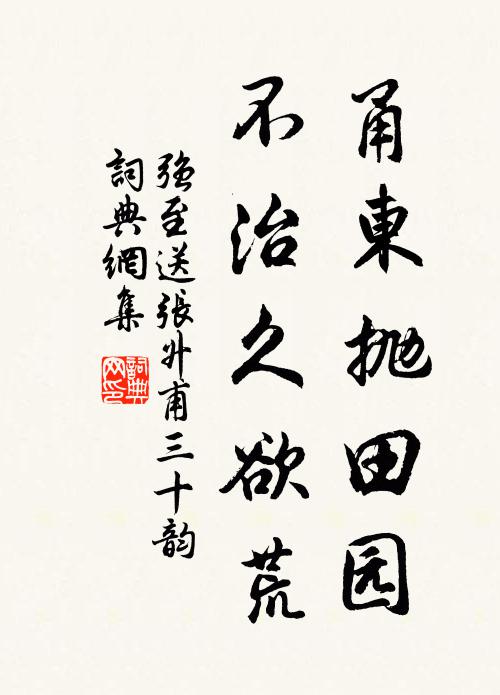 甬東抛田园
不治久欲荒
强至送張升甫三十韵
詞典網集
詞典网印